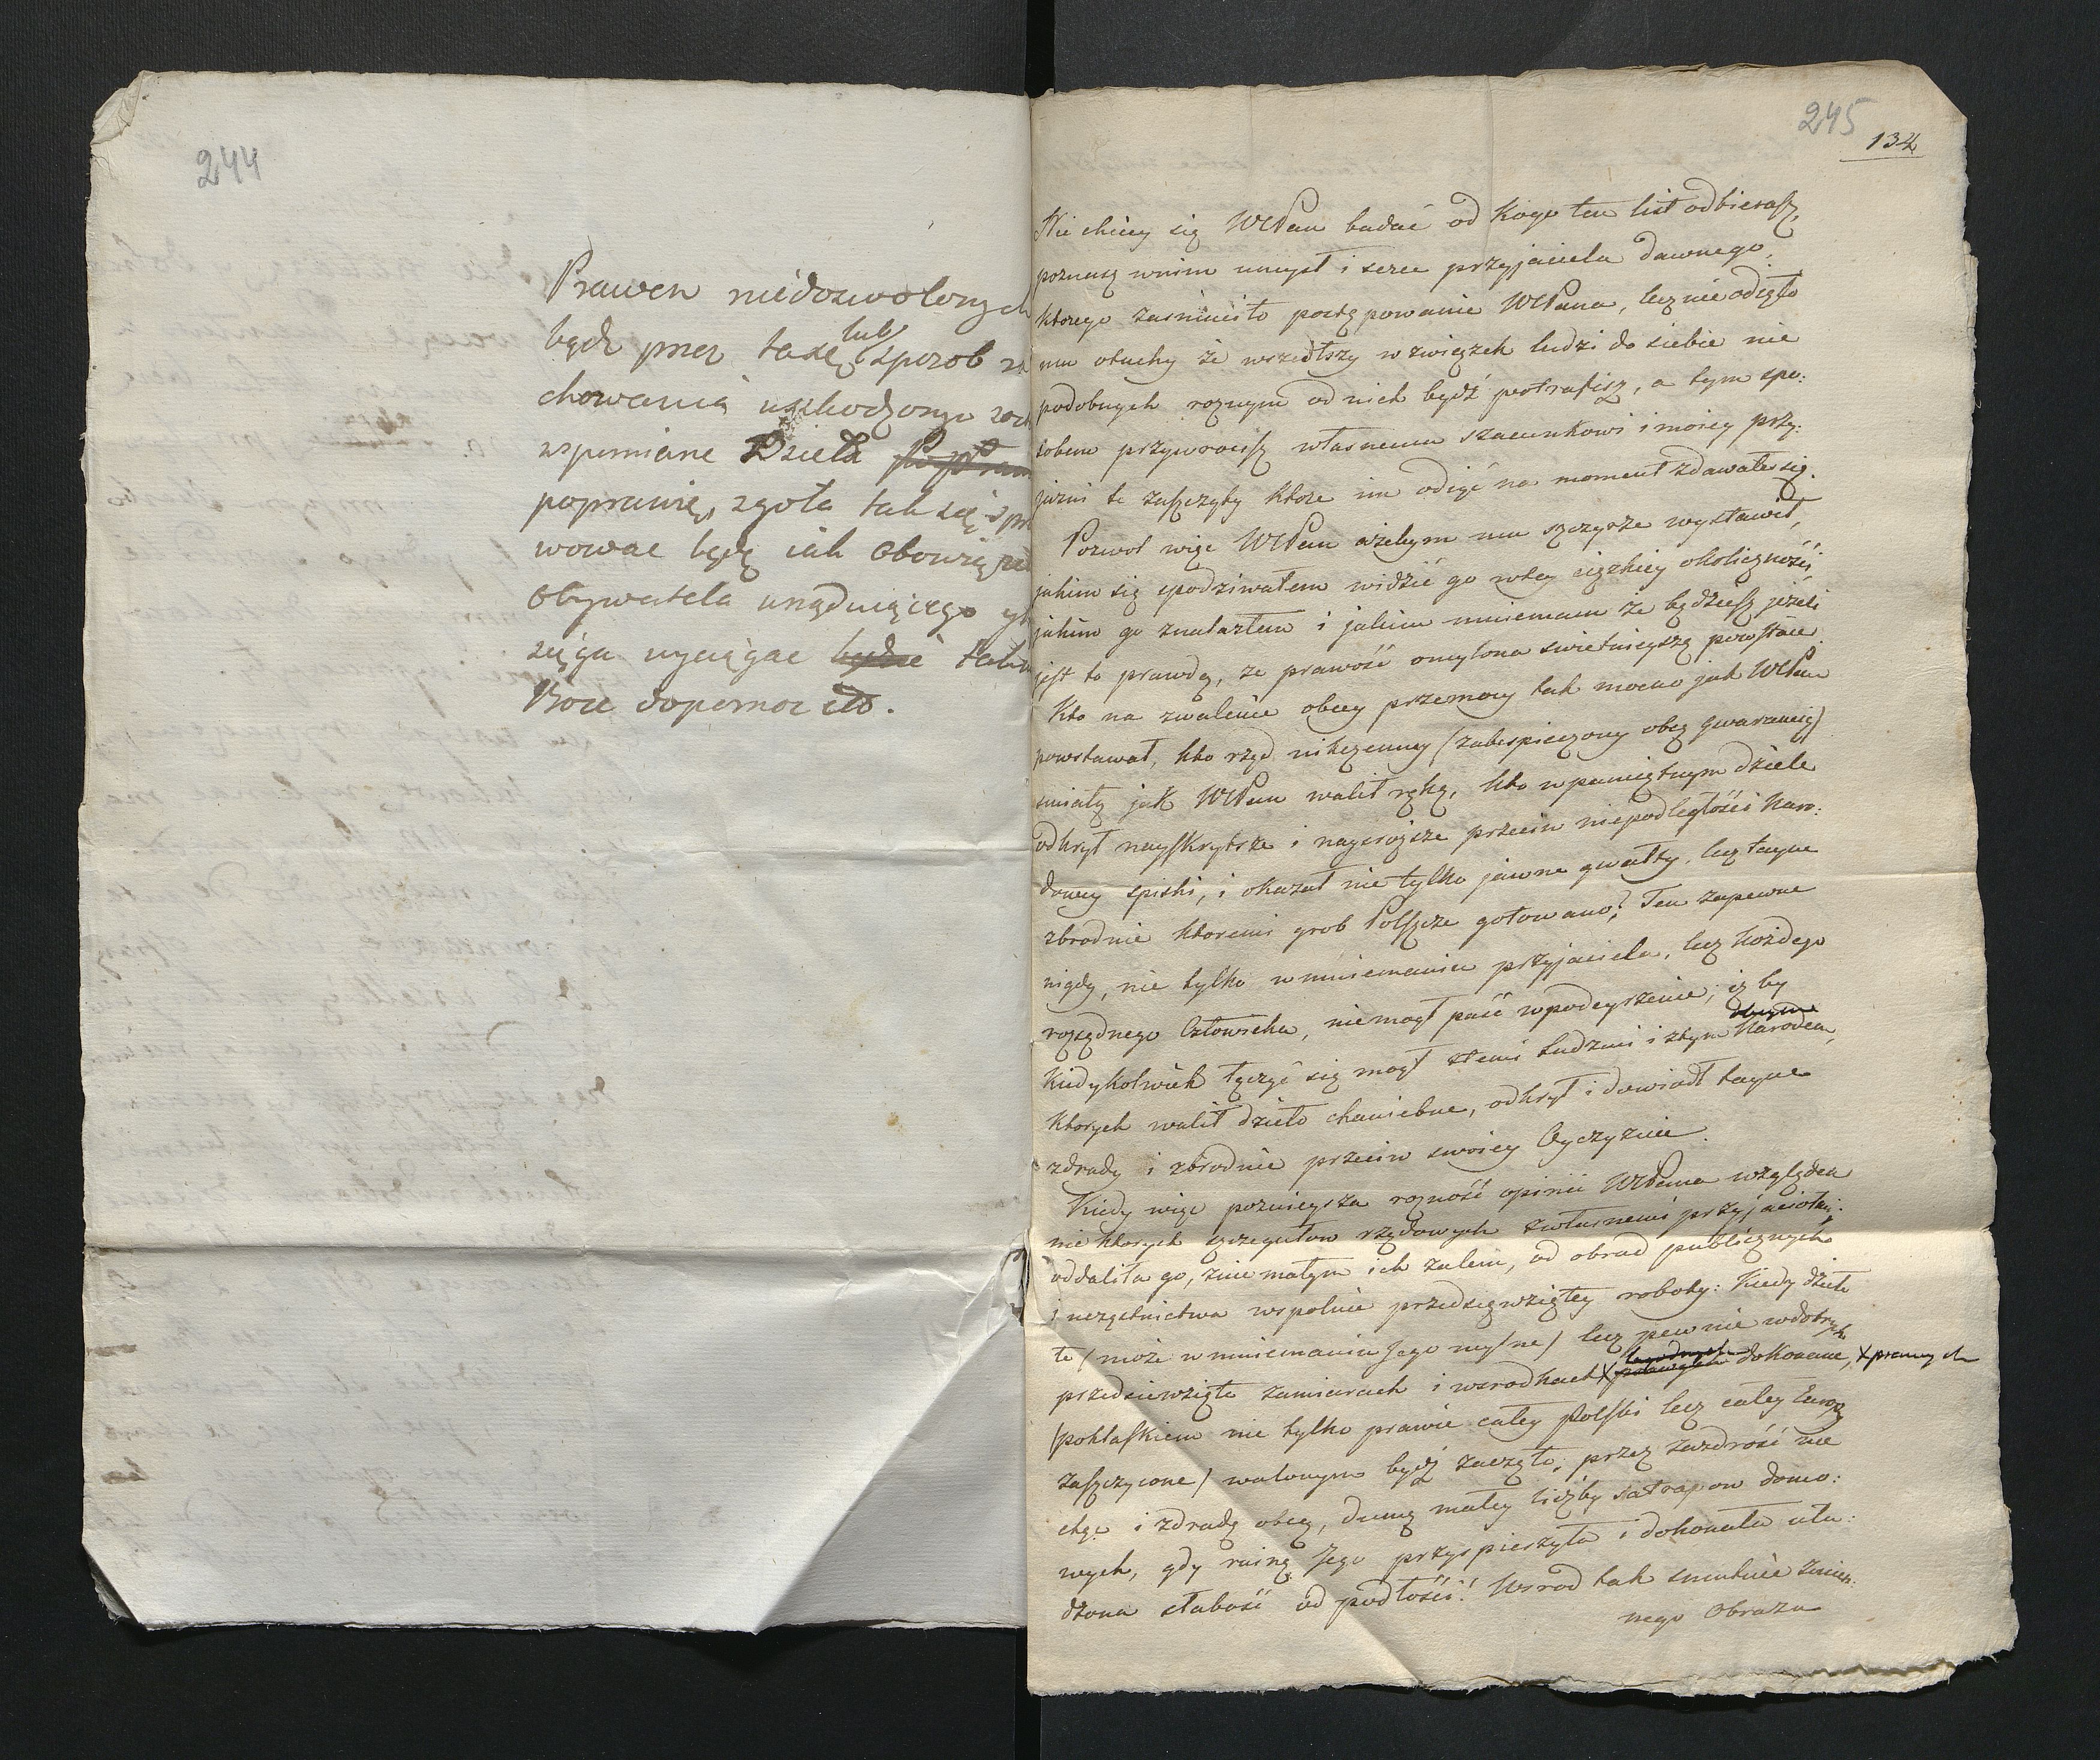 244
Prawem niédozwolonych
bądz przez taxę lub sposob za
chowania uszkodzonge
wspomiane Dzieła
poprawię, zgoła tak się spra
wowac będę iak Obowiąz
Obywatela urządzaiącego
ściąga wyciągac będzie tak
Boze dopomoz etc.
245
134
Nie chciey się WCPan badać od Kogo ten list odbierasz,
poznasz wnim umysł i serce przyjaciela dawnego,
ktorego zasmuciło postępowanie WCPana, lecz nie odięło
mu otuchy że wszedłszy w związek ludzi do siebie nie
podobnych roznym od nich bydź potrafisz, a tym spo:
sobem przywrocisz własnemu szacunkowi i moiey przy:
jazni te zaszczyty ktore im odiąć na moment zdawałeś się.
Pozwol więc WCPan ażebym mu szczyrze wystawił,
jakim się spodziwałem widzić go wtey ciężkiey okoliczności,
jakim go znalazłem i jakim mniemam że będziesz jeżeli
jest to prawdą, że prawość omylona swietnieyszą powstaie.
Kto na zwalenie obcey przemocy tak mocno jak WCPan
powstawał, kto rząd nikczemny (zabespieczony obcą gwarancią)
smiałą jak WCPan walił ręką, kto w pamiętnym dziele
odkrył nayskrytsze i naysroższe przeciw niepodległości Naro:
dowey spiski, i okazał nie tylko jawne gwałty, lecz tayne
zbrodnie ktoremi grob Polszcze gotowano? Ten zapewne
nigdy, nie tylko w mniemaniu przyjaciela, lecz każdego
rozsądnego Człowieka, niemogł paść wpodeyrzenie, iż by
Kiedykolwiek łączyć się mogł ztemi ludzmi i ztym Narodem,
Ktorych walił dzieło chaniebne, odkrył i dowiodł tayne
zdrady i zbrodnie przeciw swoiey Oyczyznie.
Kiedy więc poznieysza rozność opinii WCPana względem
nie ktorych szczegułow rządowych zwłasnemi przyjaciołmi
oddaliła go, znie małym ich żalem, od obrad publicznych
i uczęstnictwa wspolnie przedsięwziętey roboty: Kiedy dzieło
te (może w mniemaniu Jego mylne) lecz pewnie wdobrych
przedsiewzięte zamiarach i wsrodkach X dokonane, X prawych
(poklaskiem nie tylko prawie całey Polski lecz całey Europy
zaszczycone) walonym bydź zaczęło, przez zazdrość nie
chęć i zdradę obcą, dumę małey liczby satrapow domo:
wych, gdy ruinę Jego przyspieszyła i dokonała ula:
dzona słabość od podłości! Wsrod tak smutnie zmien:
nego Obrazu